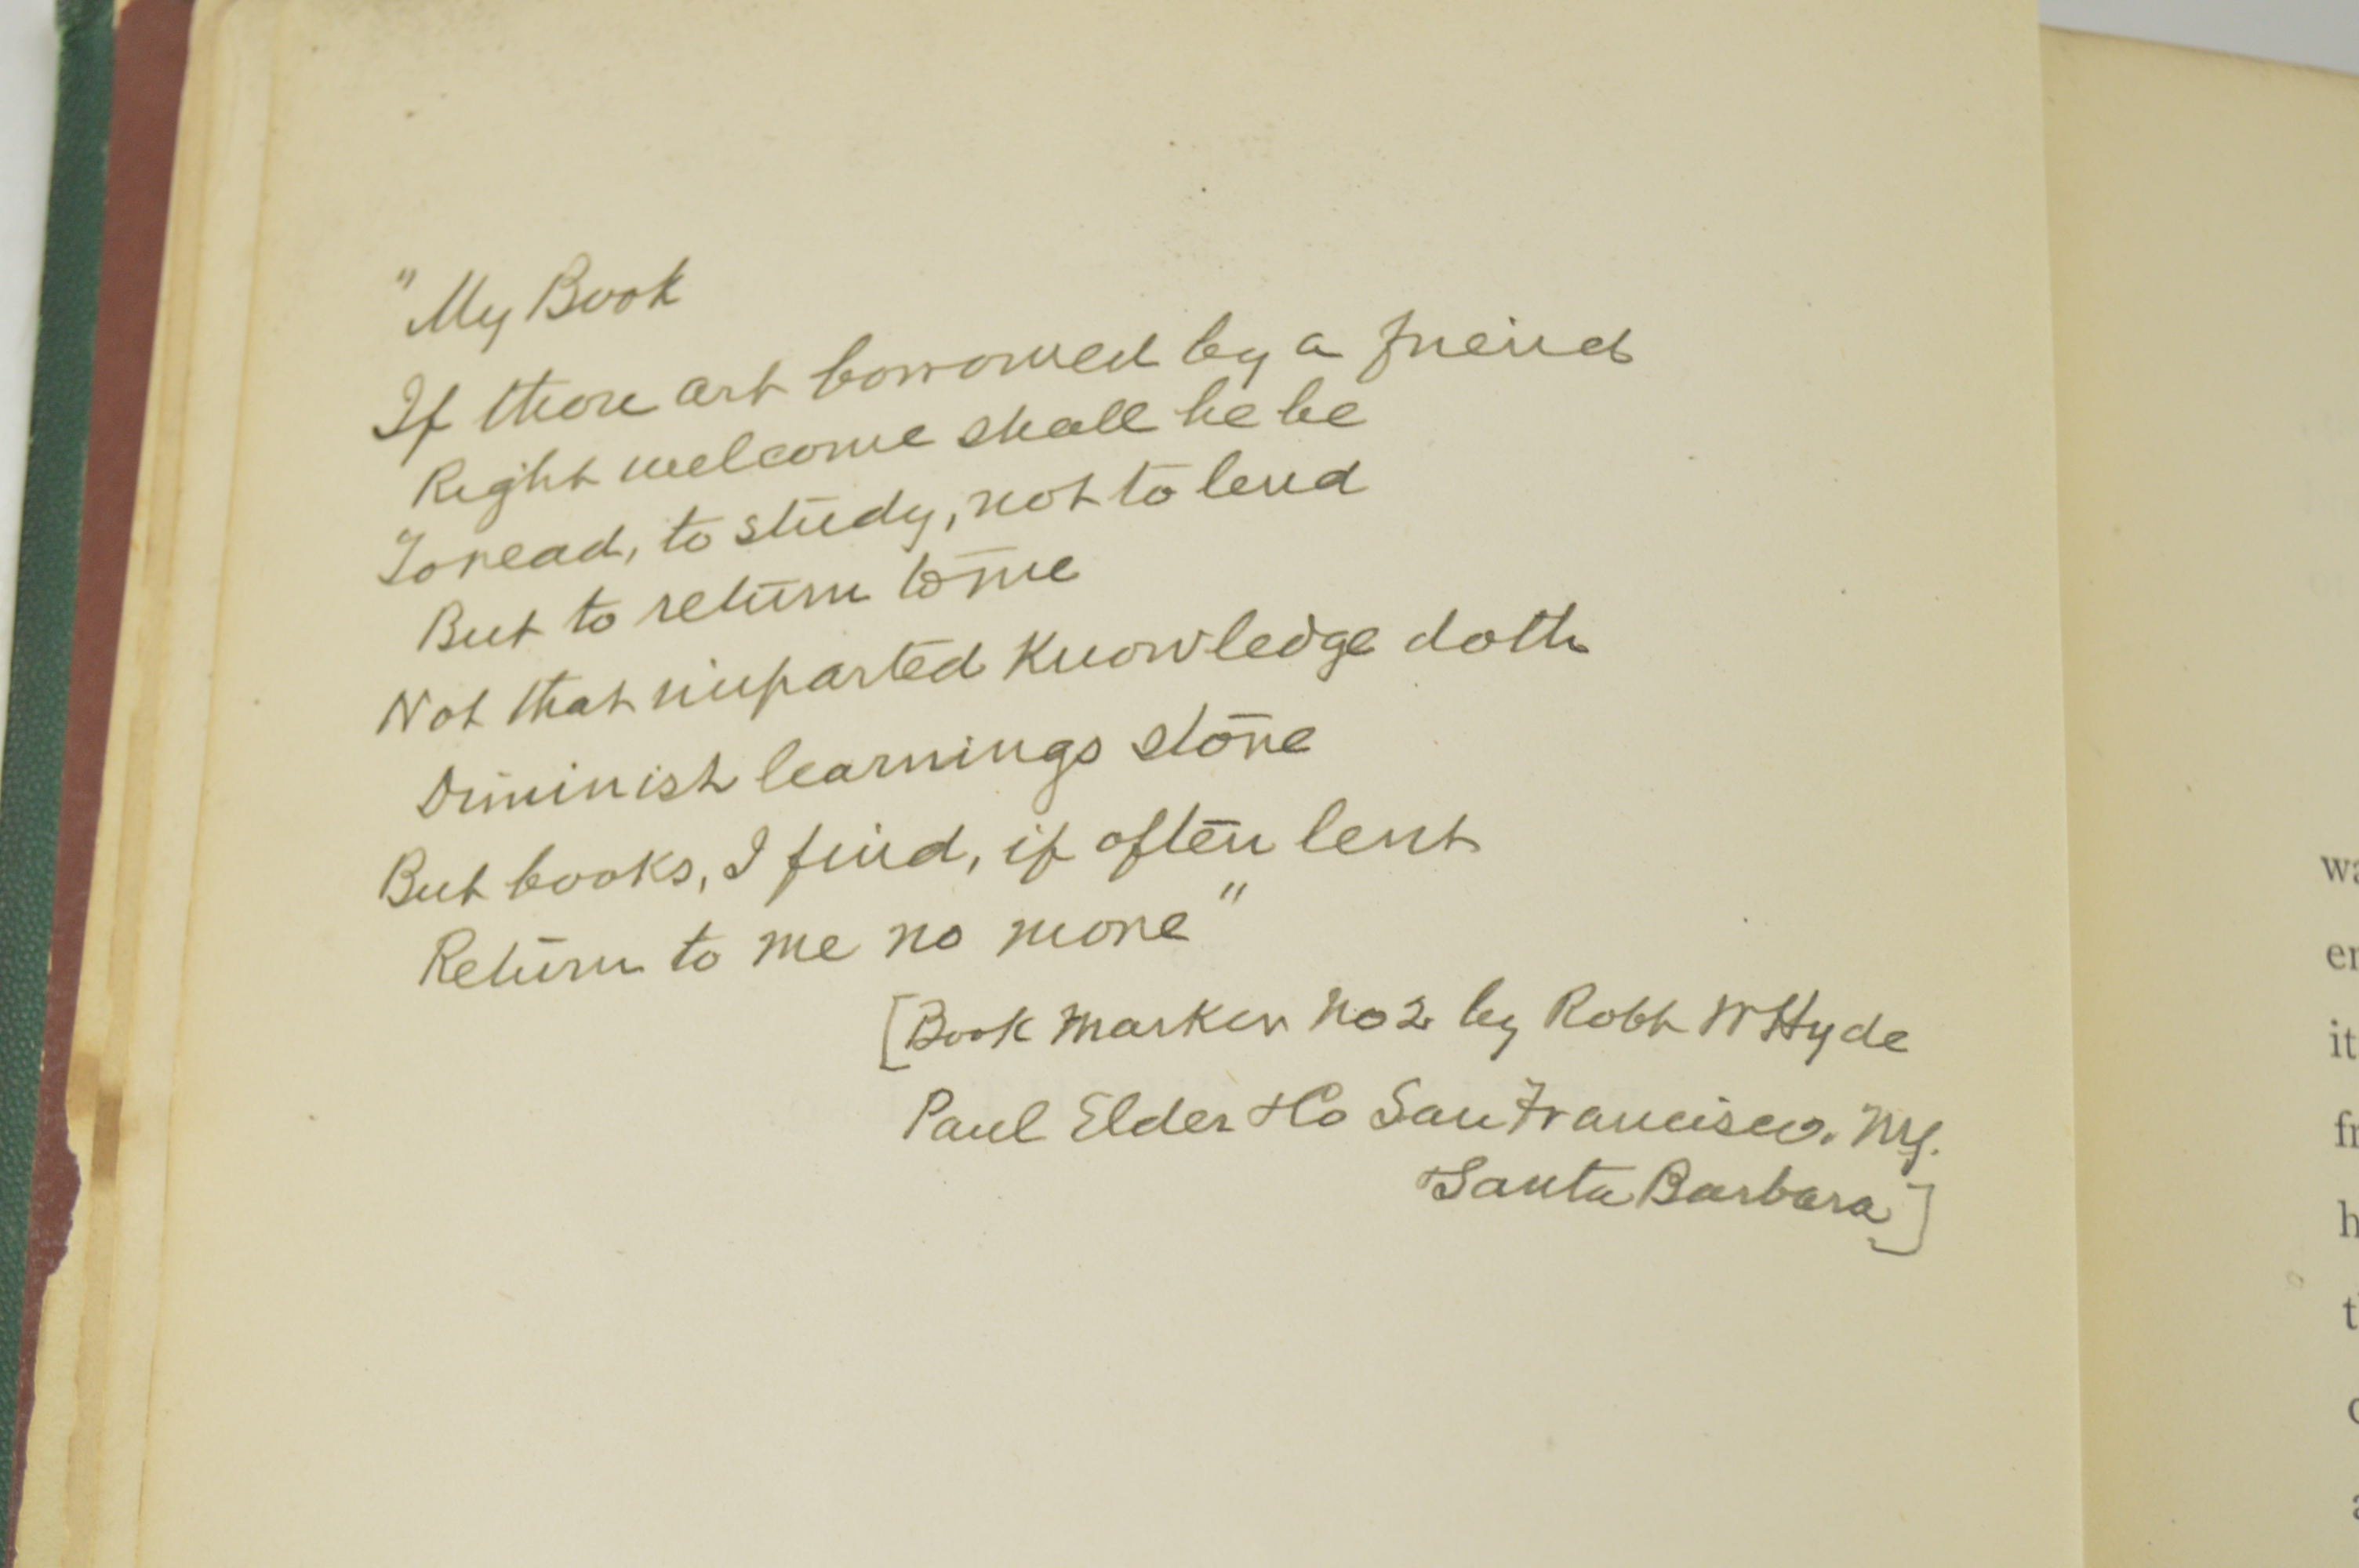 "My Book
If thou art borrowed by a friend
Right welcome shall he be
To read, to study, not to lend
But to return to me
Not that imparted Knowledge doth
Diminish learnings store
But books, I find, if often lent
Return to me no more"
[Book Marker No 2 by Robt W Hyde
Paul Elder & Co San Francisco. NY.
& Santa Barbara]
wa
en
it
fr
h
t